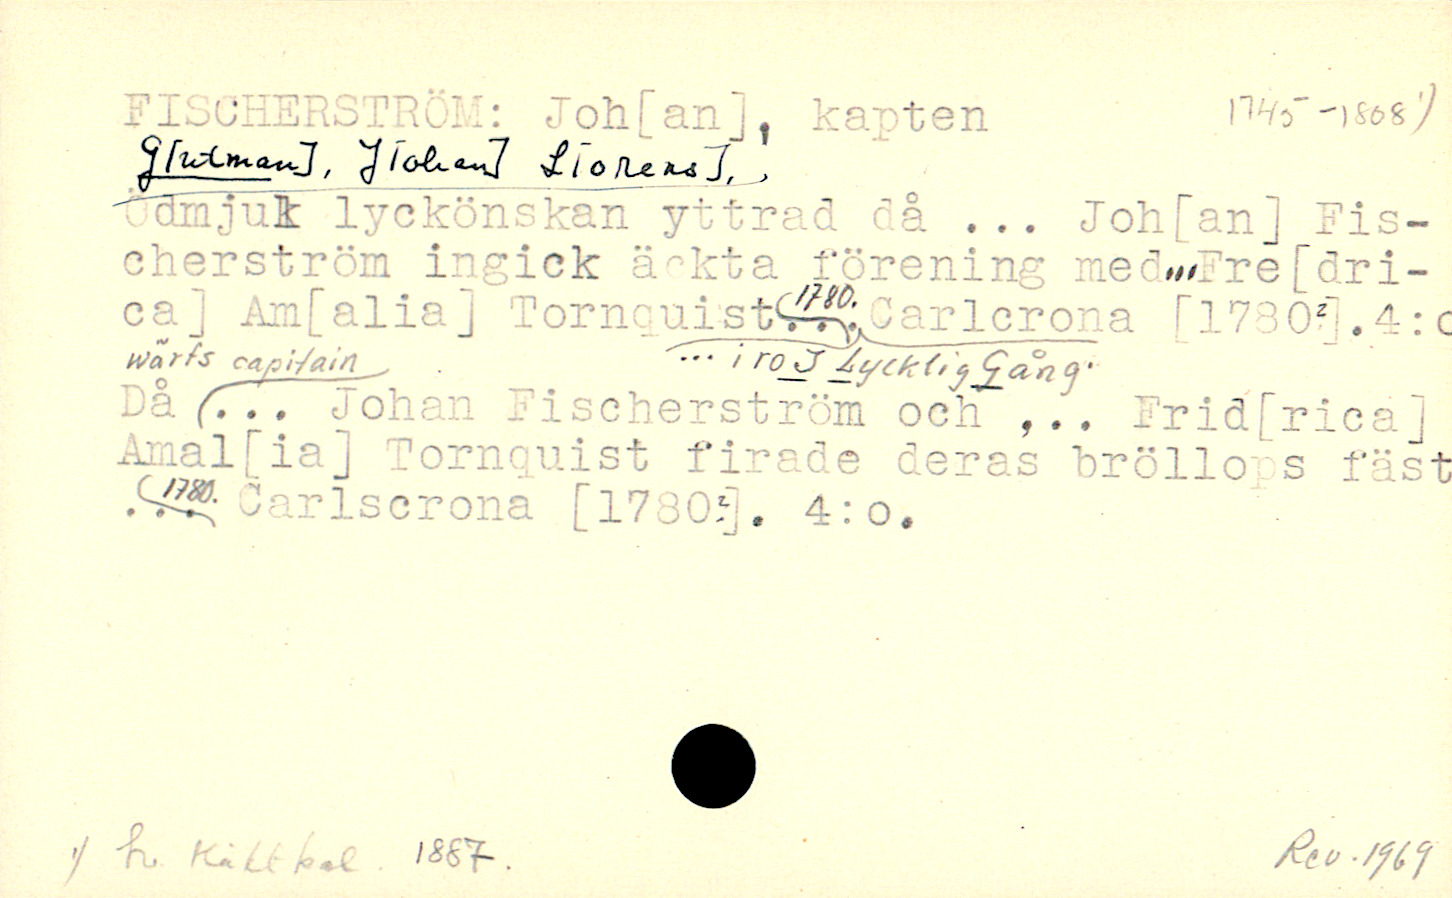 FISCHERSTRÖM: Joh[an], kapten 1745-1808 1)
G[utman], J[ohan] L[orens],
Ödmjuk lyckönskan yttrad då ... Joh[an] Fis-
cherström ingick äckta förening med...Fre[dri-
ca] Am[alia] Tornquist... 1780. Carlcrona [1780?].4:o
wärfs capitain ... i ro J Lycklig Gång.
Då ... Johan Fischerström och ,.. Frid[rica]
Amal[ia] Tornquist firade deras bröllops fäst
... 1780. Carlscrona [1780?]. 4:o.
1) 1887. Rev. 1969